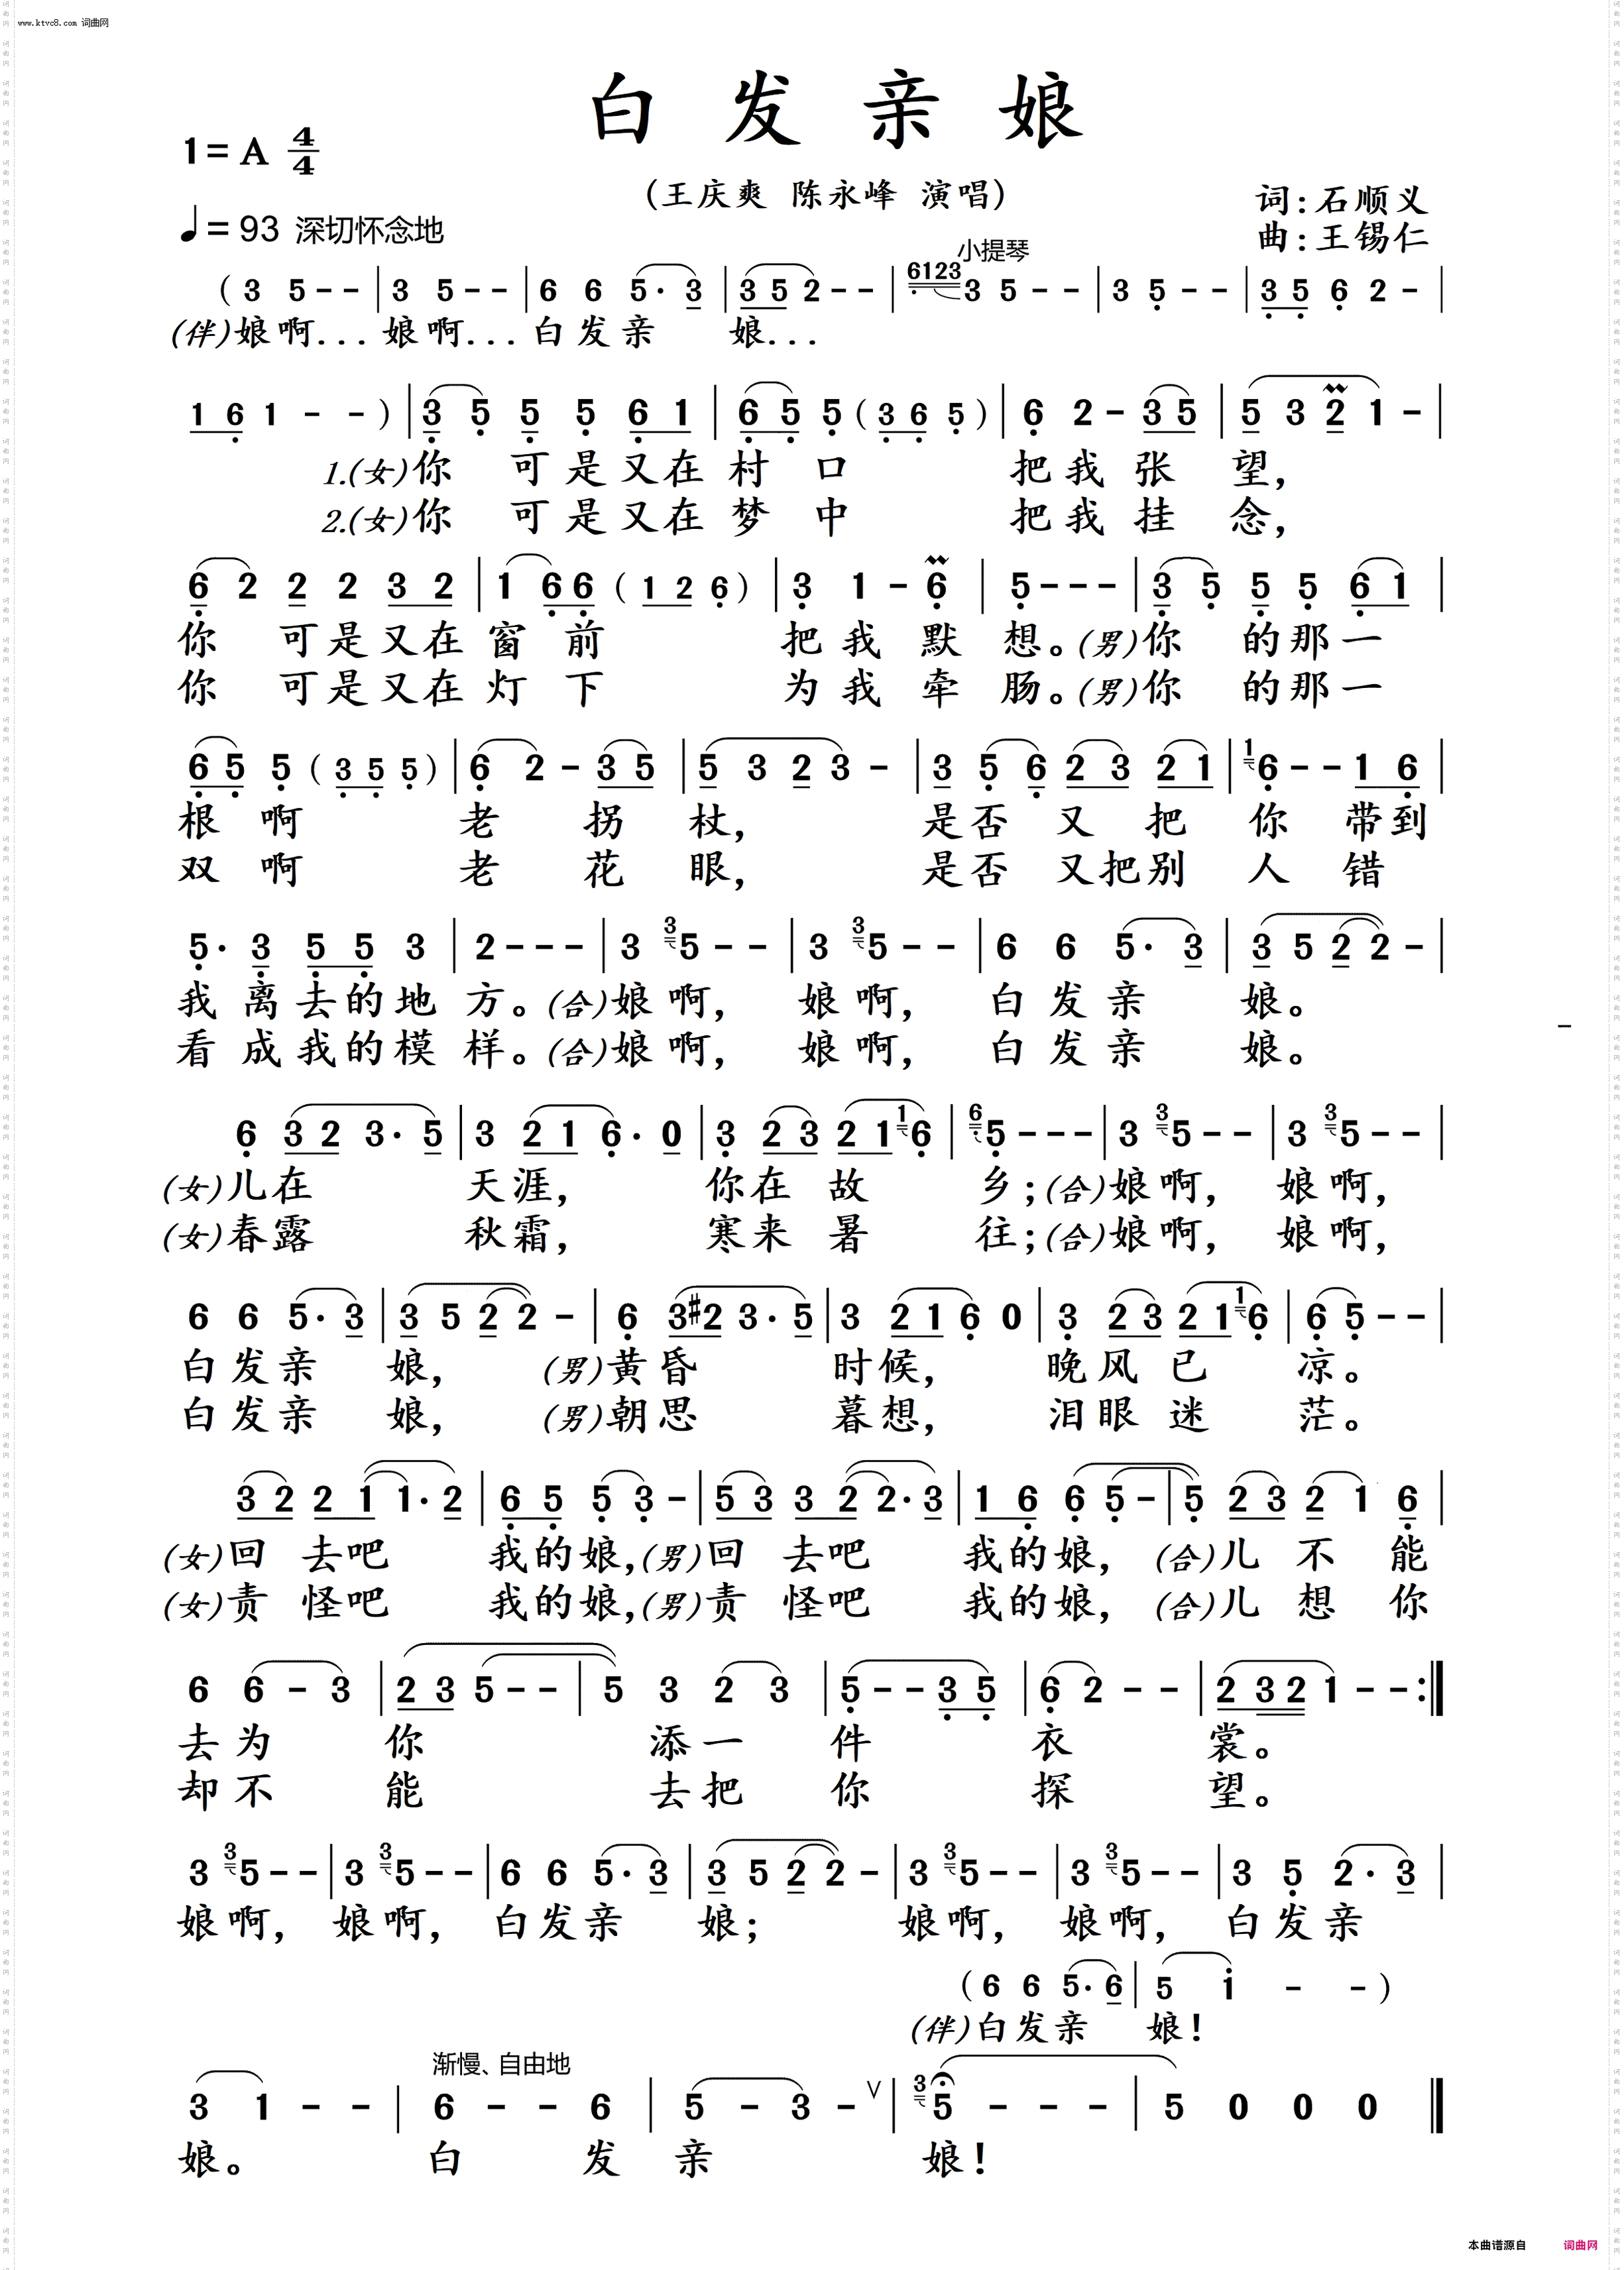 www.ktvc8.com 词曲网
白发亲娘
1=A 4/4
(王庆爽 陈永峰 演唱)
词:石顺义
♩=93 深切怀念地
曲:王锡仁
小提琴
( 3 5 - - | 3 5 - - | 6 6 5· 3 | 3 5 2 - - | 6123 3 5 - - | 3 5 - - | 3 5 6 2 - |
(伴)娘啊...娘啊...白发亲 娘...
1 6 1 - - ) | 3 5 5 5 6 1 | 6 5 5 ( 3 6 5 ) | 6 2 - 3 5 | 5 3 2 1 - |
1.(女)你 可是又在村 口 把我张 望,
2.(女)你 可是又在梦 中 把我挂 念,
6 2 2 2 3 2 | 1 6 6 ( 1 2 6 ) | 3 1 - 6 | 5 - - - | 3 5 5 5 6 1 |
你 可是又在窗 前 把我默 想。(男)你 的那一
你 可是又在灯 下 为我牵 肠。(男)你 的那一
6 5 5 ( 3 5 5 ) | 6 2 - 3 5 | 5 3 2 3 - | 3 5 6 2 3 2 1 | 1 6 - - 1 6 |
根 啊 老 拐 杖, 是否 又 把 你 带到
双 啊 老 花 眼, 是否 又把别 人 错
5· 3 5 5 3 | 2 - - - | 3 3 5 - - | 3 3 5 - - | 6 6 5· 3 | 3 5 2 2 - |
我 离去的地 方。(合)娘啊, 娘啊, 白发亲 娘。
看 成我的模 样。(合)娘啊, 娘啊, 白发亲 娘。
6 3 2 3· 5 | 3 2 1 6· 0 | 3 2 3 2 1 1 6 | 6 5 - - - | 3 3 5 - - | 3 3 5 - - |
(女)儿在 天涯, 你在 故 乡;(合)娘啊, 娘啊,
(女)春露 秋霜, 寒来 暑 往;(合)娘啊, 娘啊,
6 6 5· 3 | 3 5 2 2 - | 6 3 #2 3· 5 | 3 2 1 6 0 | 3 2 3 2 1 1 6 | 6 5 - - |
白发亲 娘, (男)黄昏 时候, 晚风已 凉。
白发亲 娘, (男)朝思 暮想, 泪眼迷 茫。
3 2 2 1 1· 2 | 6 5 5 3 - | 5 3 3 2 2· 3 | 1 6 6 5 - | 5 2 3 2 1 6 |
(女)回 去吧 我的娘,(男)回 去吧 我的娘, (合)儿 不 能
(女)责 怪吧 我的娘,(男)责 怪吧 我的娘, (合)儿 想 你
6 6 - 3 | 2 3 5 - - | 5 3 2 3 | 5 - - 3 5 | 6 2 - - | 2 3 2 1 - - :‖
去为 你 添一 件 衣 裳。
却不 能 去把 你 探 望。
3 3 5 - - | 3 3 5 - - | 6 6 5· 3 | 3 5 2 2 - | 3 3 5 - - | 3 3 5 - - | 3 5 2· 3 |
娘啊, 娘啊, 白发亲 娘; 娘啊, 娘啊, 白发亲
( 6 6 5· 6 | 5 i - - )
(伴)白发亲 娘!
渐慢、自由地
3 1 - - | 6 - - 6 | 5 - 3 - ∨ | 3 5 - - - | 5 0 0 0 ‖
娘。 白 发 亲 娘!
本曲谱源自 词曲网